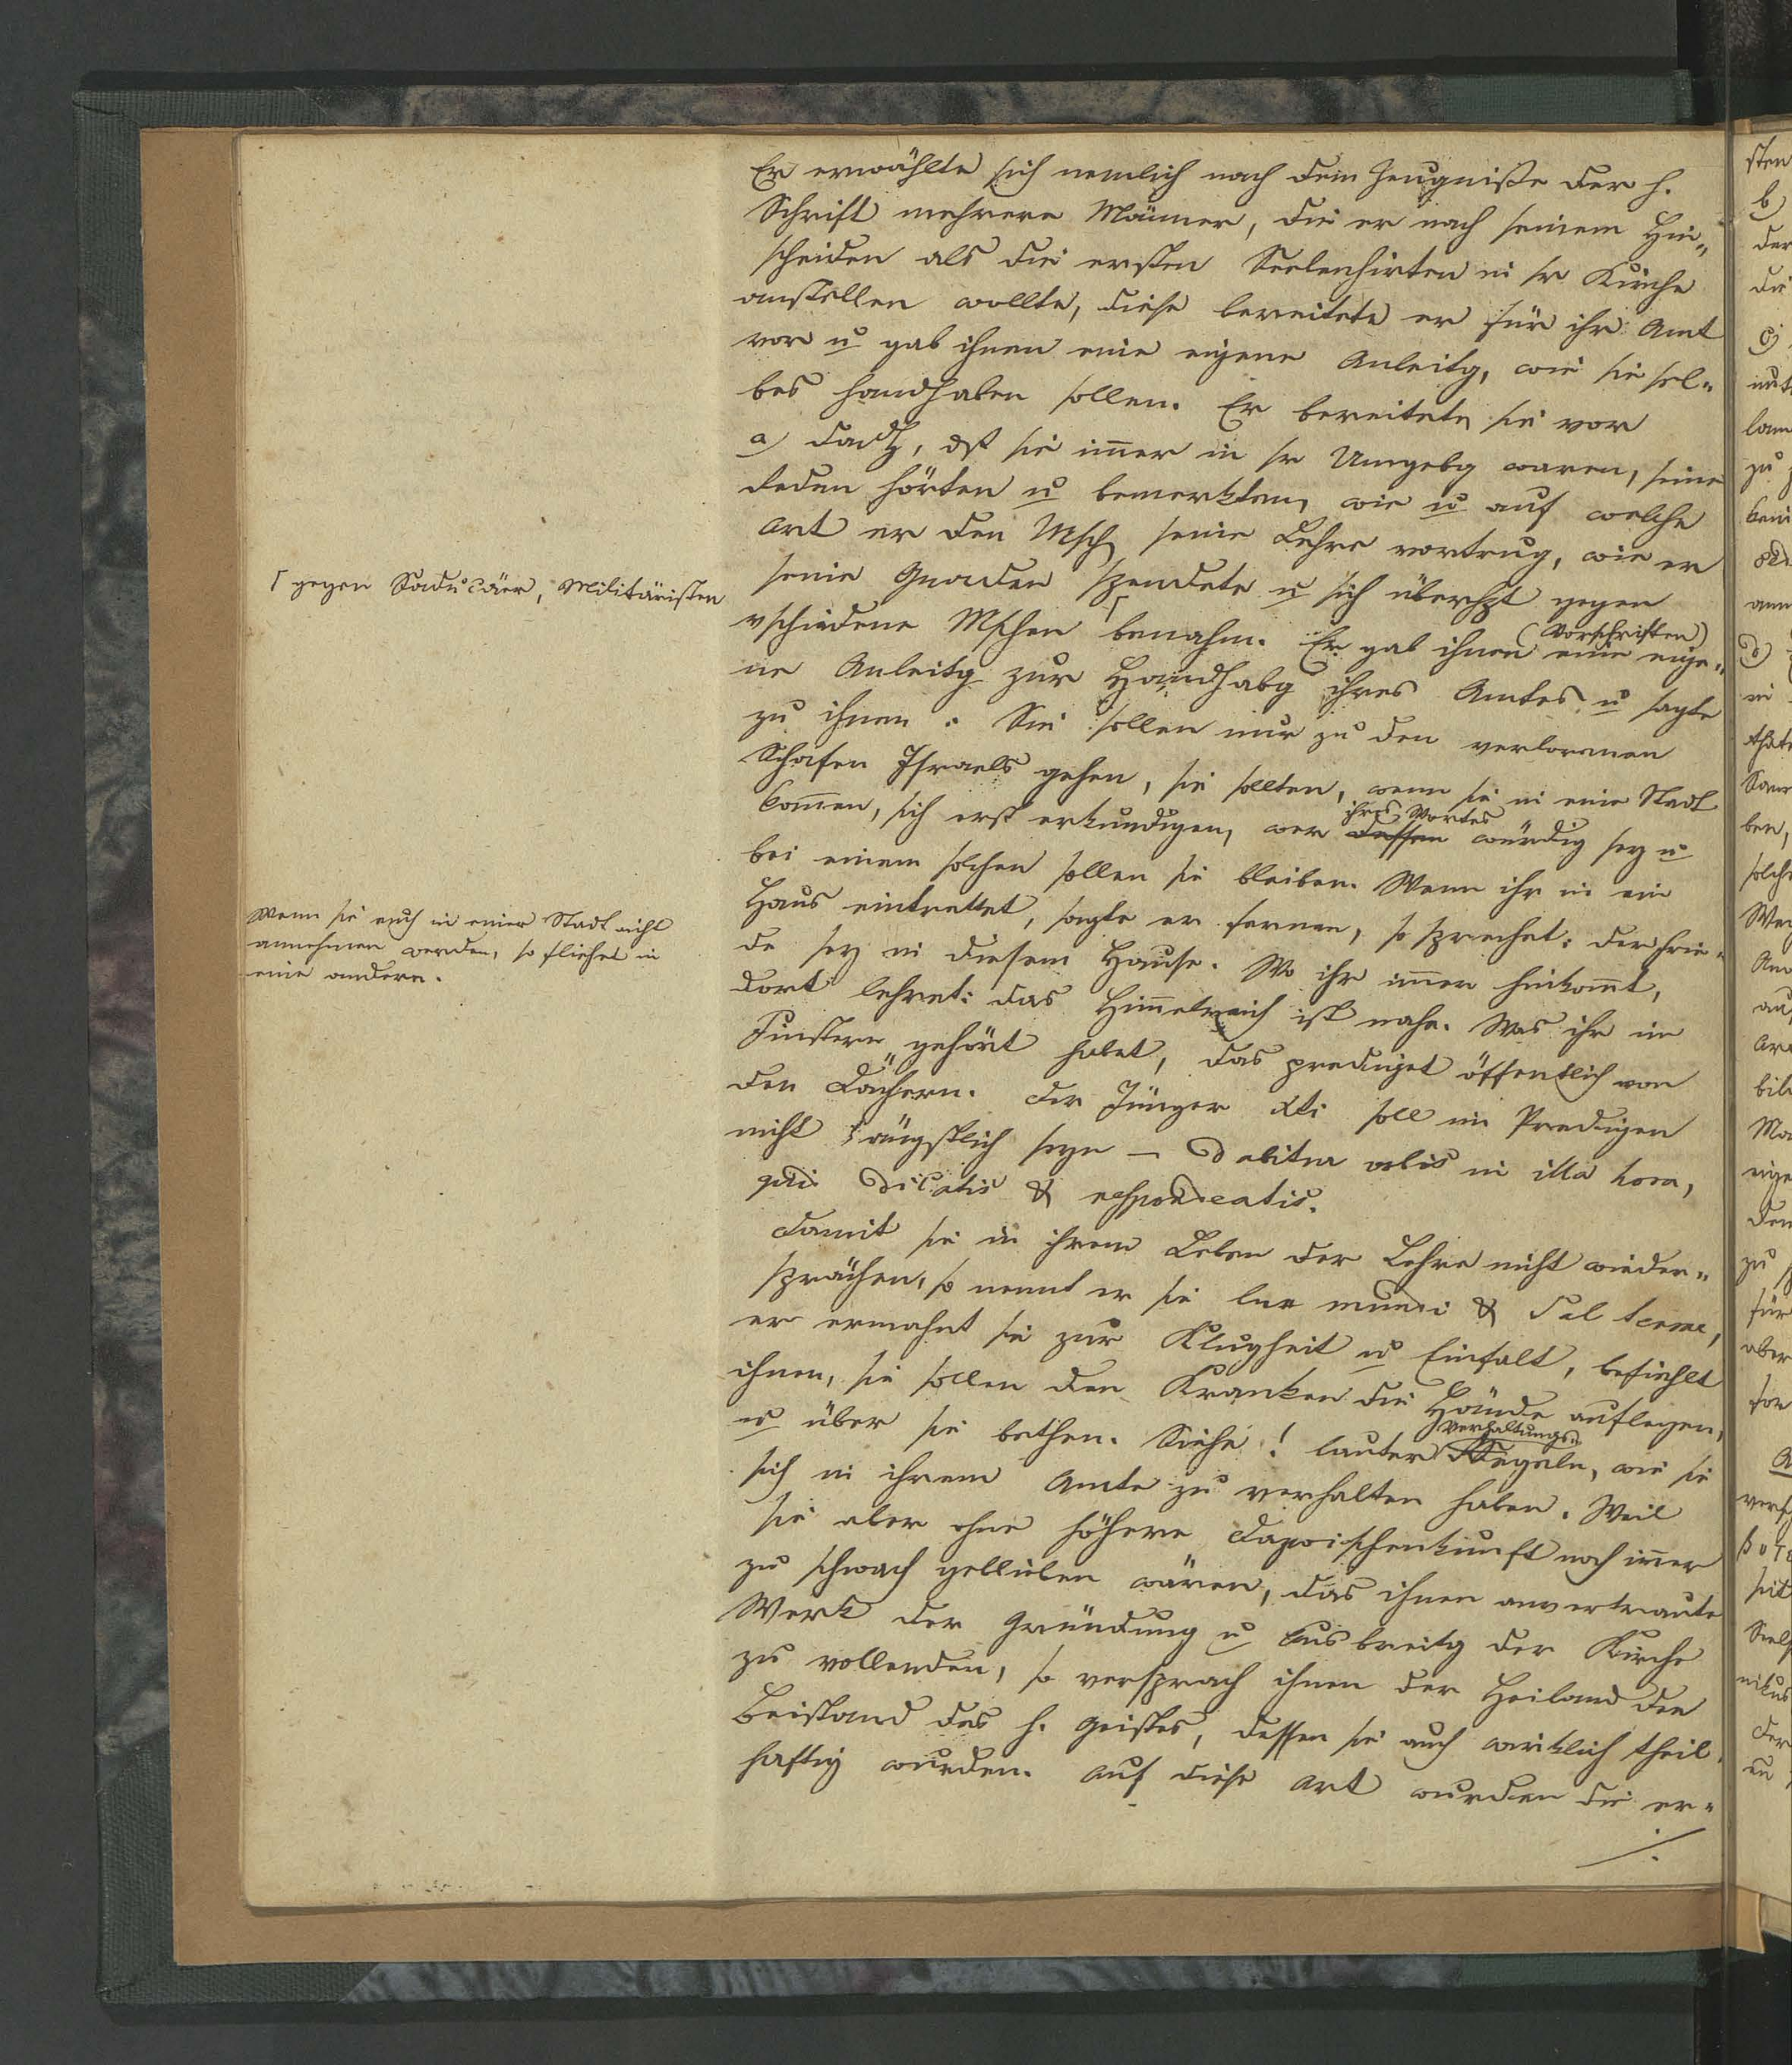 Er erwählte sich nemlich nach dem Zeugniße der h.
Schrift mehrere Männer, die er nach seinem Hin„
scheiden als die ersten Seelenhirten in sr Kirche
anstellen wollte, diese bereitete er für ihr Amt
vor u gab ihnen eine eigene Anleitg, wie sie sel„
bes handhaben sollen. Er bereitete sie vor
a) dadch, dß sie im̅er in sr Umgebg waren, seine
Reden hörten u bemerkten, wie u auf welche
Art er den Msch seine Lehre vortrug, wie er
seine Gnaden spendete u sich überhpt gegen
┌ gegen Saducäer, Militäristen
vschiedene Mschen ┌ benahm. Er gab ihnen eine eige„
(Vorschriften)
ne Anleitg zur Handhabg ihres Amtes u sagte
zu ihnen: Sie sollen nur zu den verlornen
Schafen Israels gehen, sie sollten, wenn sie in eine Stadt
kom̅en, sich erst erkundigen, wer dessen würdig sey u
ihres Wortes
bei einem solchen sollen sie bleiben. Wenn ihr in ein
Haus eintrettet, sagte er ferner, so sprechet: der Frie„
de sey in diesem Hause. Wo ihr im̅er hinkom̅t,
Wenn sie euch in einer Stadt nicht
annehmen werden, so fliehet in
eine andere.
dort lehret: das Him̅elreich ist nahe. Was ihr im
Finstern gehört habet, das prediget öffentlich von
den Dächern. Der Jünger Xti soll im Predigen
nicht ängstlich seyn – Dabitur vobis in illa hora,
quid dicatis & respondeatis.
Damit sie in ihrem Leben der Lehre nicht wieder„
sprächen, so nennt er sie lux mundi & sal terrae,
er ermahnt sie zur Klugheit u Einfalt, befiehlt
ihnen, sie sollen den Kranken die Hände auflegen,
u über sie bethen. Siehe! lauter Regeln, wie sie
Verhaltungs„
sich in ihrem Amte zu verhalten haben. Weil
sie aber ohne höhere Dazwischenkunft noch im̅er
zu schwach geblieben wären, das ihnen anvertraute
Werk der Gründung u Ausbreitg der Kirche
zu vollenden, so versprach ihnen der Heiland den
Beistand des h. Geistes, dessen sie auch wirklich theil„
haftig wurden. Auf diese Art wurden die er„
./.